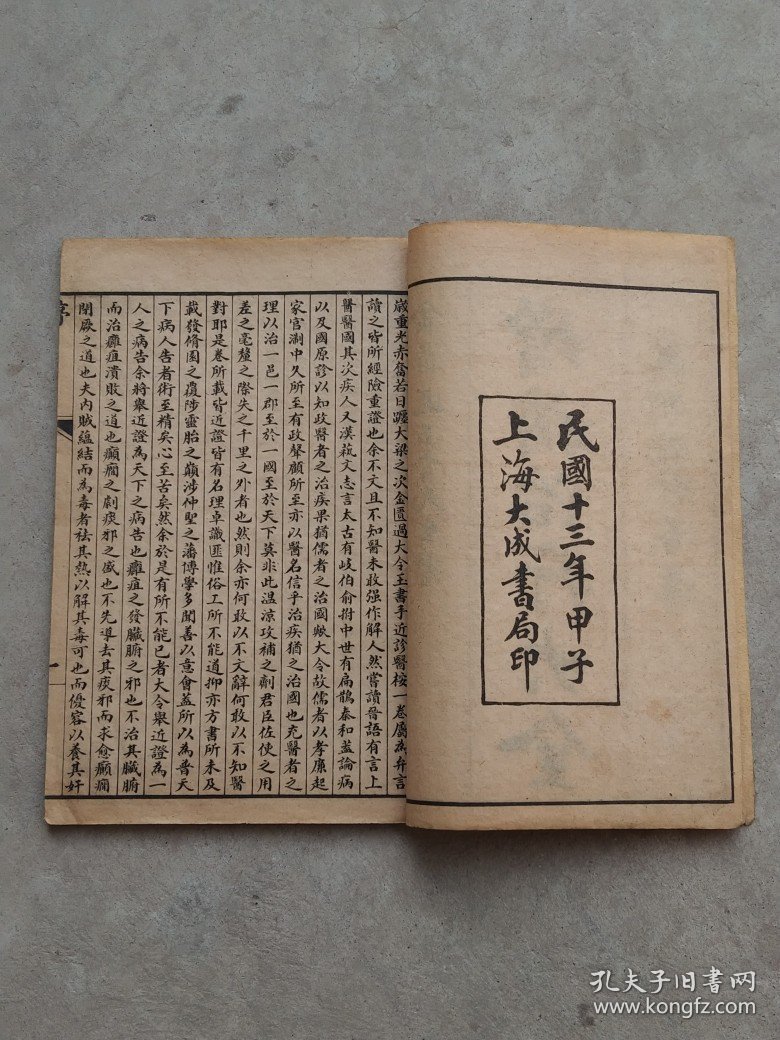 民國十三年甲子
上海大成書局印
歲重光赤奮若日躔大梁之次金匱過大令玉書手近診醫桉一卷屬為弁言
讀之皆所經險重證也余不文且不知醫未敢强作解人然嘗讀晉語有言上
醫醫國其次疾人又漢藝文志言太古有岐伯俞拊中世有扁鵲秦和蓋論病
以及國原診以知政醫者之治疾果猶儒者之治國歟大令故儒者以孝廉起
家官淛中久所至有政聲顧所至亦以醫名信乎治疾猶之治國也充醫者之
理以治一邑一郡至於一國至於天下莫非此温涼攻補之劑君臣佐使之用
差之毫釐之際失之千里之外者也然則余亦何敢以不文辭何敢以不知醫
對耶是卷所載皆近證皆有名理卓識匪惟俗工所不能道抑亦方書所未及
載發脩園之覆陟靈胎之巔涉仲聖之藩博學多聞善以意會蓋所以為普天
下病人告者術至精矣心至苦矣然余於是有所不能已者大令舉近證為一
人之病告余將舉近證為天下之病告也癰疽之發臟腑之邪也不治其臟腑
而治癰疽潰敗之道也癲癇之劇痰邪之盛也不先導去其痰邪而求愈癲癇
閉厥之道也夫内賊蘊結而為毒者祛其熱以解其毒可也而優容以養其奸
序
一
孔夫子旧书网
www.kongfz.com